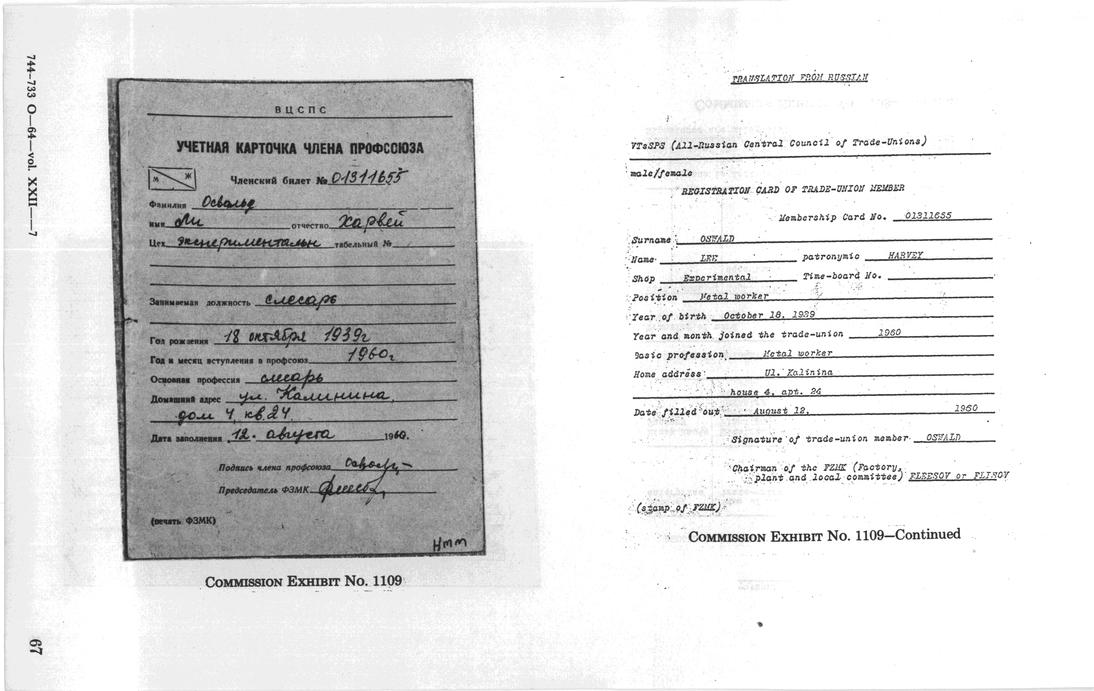 744-733 O—64—vol. XXII——7
67
ВЦСПС
УЧЕТНАЯ КАРТОЧКА ЧЛЕНА ПРОФСОЮЗА
М Ж
Членский билет № 01311655
Фамилия Освальд
имя Ли отчество Харвей
Цех экспериментальн табельный №
Занимаемая должность слесарь
Год рождения 18 октября 1939г
Год и месяц вступления в профсоюз 1960г
Основная профессия слесарь
Домашний адрес ул. Калинина,
дом 4, кв. 24
Дата заполнения 12. августа 1960.
Подпись члена профсоюза
Председатель ФЗМК
(печать ФЗМК)
Нтт
COMMISSION EXHIBIT NO. 1109
TRANSLATION FROM RUSSIAN
VTsSPS (All-Russian Central Council of Trade-Unions)
male/female
REGISTRATION CARD OF TRADE-UNION MEMBER
Membership Card No. 01311655
Surname OSWALD
Name LEE patronymic HARVEY
Shop Experimental Time-board No.
Position Metal worker
Year of birth October 18, 1939
Year and month joined the trade-union 1960
Basic profession Metal worker
Home address Ul. Kalinina
house 4, apt. 24
Date filled out August 12, 1960
Signature of trade-union member OSWALD
Chairman of the FZMK (Factory,
plant and local committee) FLEESOV or FLISOV
(stamp of FZMK)
COMMISSION EXHIBIT NO. 1109—Continued